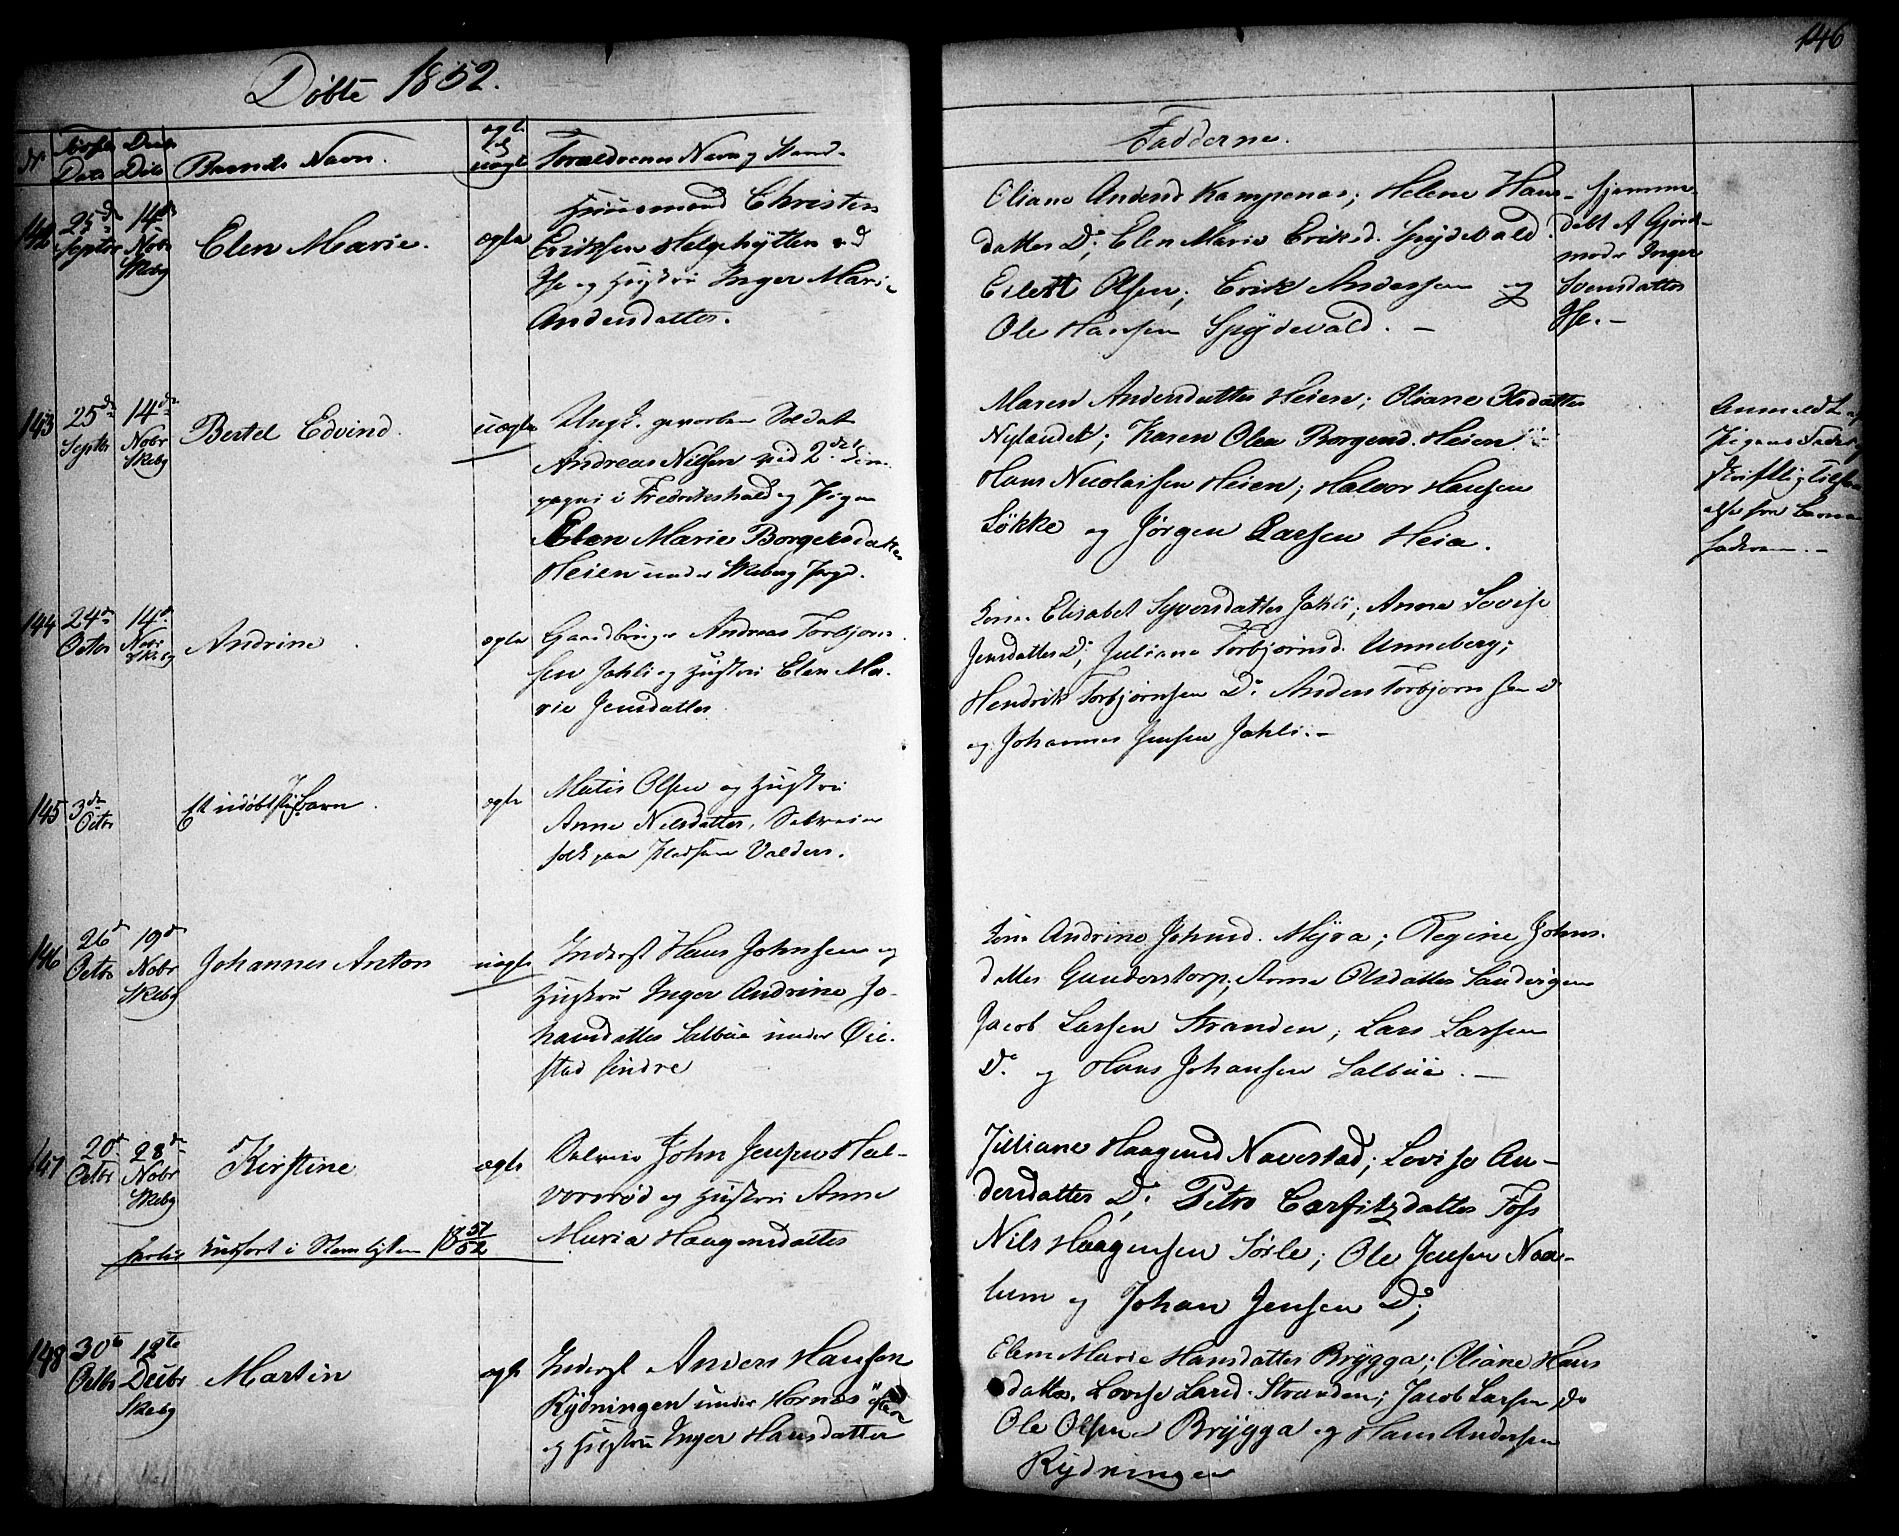 146
Døbte 1852.
Nº Fødsels Dato Daabs Dato Barnets Navn. ægte el. uægte Forældrenes Navn og Stand.
Fadderne.
142 25de Septbr 14de Nobr Skbg Elen Marie. ægte
Huusmand Christen
Eriksen Helgehytten
og Hustru Inger Marie
Andersdatter.
Oliane Andersd Kampenæs; Helene Hans-
datter Do; Elen Marie Eriksd. Spydevold.
Eilert Olsen; Erik Andersen og
Ole Hansen Spydevold. —
Hjemme-
døbt af Gjord-
moder Inger
Svensdatter
143 25de Septbr 14de Nobr Skebg Bertel Edvind. uægte
Ungk. gevorben Soldat
Andreas Nilsen ved 2det Com-
pagni i Fredrikshald og Pigen
Elen Marie Borgersdatter
Heien under Skeberg Præsgd.
Maren Andersdatter Heien; Oliane Olsdatter
Nylandet; Karen Olea Borgersd. Heien
Hans Nicolaisen Heien; Halvor Hansen
Løkke og Jørgen Larsen Heia.
Anmeldt af
Pigens Fader
skriftlig tilstaa-
else fra Barne-
faderen. —
144 24de Octbr 14de Nobr Skebg Andrine ægte
Gaardbruger Andreas Torbjørn-
sen Jahli og Hustru Elen Ma-
rie Jensdatter
Kone Elisabet Syversdatter Jahli; Anne Lovise
Jensdatter Do; Juliane Torbjørnsd. Unneberg;
Hendrik Torbjørnsen Do. Anders Torbjørnsen Do
og Johannes Jensen Jahli. —
145 3de Octbr Et udøbt Barn. ægte
Matis Olsen og Hustru
Anne Nilsdatter,
folk paa Valders.
146 26de Octbr 19de Nobr Skebg Johannes Anton uægte
Inderst Hans Johnsen og
Hustru Inger Andrine Jo-
hansdatter Salbue under Øie-
stad søndre
Kone Andrine Johnsd. Myra; Regine Johns-
datter Gunderstorp; Anne Olsdatter Sandvigen
Jacob Larsen Stranden; Lars Larsen
Do. og Hans Johansen Salbue. —
147 20de Octbr 28de Nobr Skebg Kirstine ægte
John Jensen Hal-
vorsrød og Hustru Anne
Maria Haagensdatter
Juliane Haagensd Navestad; Lovise An-
dersdatter Do; Petro Carsitzdatter Foss
Nils Haagensen Sørle; Ole Jensen Naa-
lum og Johan Jensen Do;
indført i 18 51/52
148 30te Octbr 12te Decbr Skebg Martin ægte
Inderst Anders Hansen
Rydningen under Hornæs
og Hustru Inger Hansdatter
Elen Marie Hansdatter Brygga; Oliane Hans
datter. Lovise Larsd. Stranden; Jacob Larsen do
Ole Olsen Brygga og Hans Andersen
Rydningen